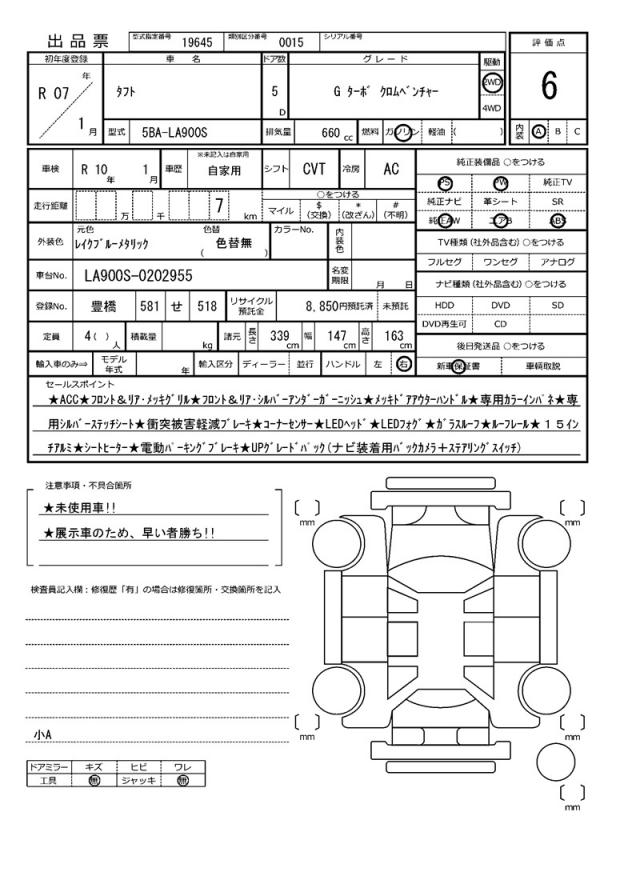 出品票
型式指定番号 19645 類別区分番号 0015 シリアル番号
初年度登録 車名 ドア数 グレード 駆動 評価点
R 07 年 1 月 タフト 5 D G ターボ クロムベンチャー 2WD 4WD 6
型式 5BA-LA900S 排気量 660 cc 燃料 ガソリン 軽油 ( ) 内装 A B C
車検 R 10 年 1 月 車歴 ※未記入は自家用 自家用 シフト CVT 冷房 AC
純正装備品 ○をつける
PS PW 純正TV
純正ナビ 革シート SR
純正AW エアB ABS
走行距離 万 千 7 km ○をつける マイル $ (交換) * (改ざん) # (不明)
TV種類 (社外品含む) ○をつける
フルセグ ワンセグ アナログ
外装色 元色 レイクブルーメタリック 色替 ( 色替無 ) カラーNo. 内装色
ナビ種類 (社外品含む) ○をつける
HDD DVD SD
DVD再生可 CD
車台No. LA900S-0202955 名変期限 月 日
登録No. 豊橋 581 せ 518 リサイクル預託金 8,850円預託済 未預託
定員 4( ) 人 積載量 kg 諸元 長さ 339 cm 幅 147 cm 高さ 163 cm
後日発送品 ○をつける
新車保証書 車輌取説
輸入車のみ⇒ モデル年式 年 輸入区分 ディーラー 並行 ハンドル 左 右
セールスポイント
★ACC★フロント&リア・メッキグリル★フロント&リア・シルバーアンダーガーニッシュ★メッキドアアウターハンドル★専用カラーインパネ★専
用シルバーステッチシート★衝突被害軽減ブレーキ★コーナーセンサー★LEDヘッド★LEDフォグ★ガラスルーフ★ルーフレール★15イン
チアルミ★シートヒーター★電動パーキングブレーキ★UPグレードパック(ナビ装着用バックカメラ+ステアリングスイッチ)
注意事項・不具合箇所
★未使用車!!
★展示車のため、早い者勝ち!!
検査員記入欄：修復歴「有」の場合は修復箇所・交換箇所を記入
小A
ドアミラー キズ ヒビ ワレ
工具 無 ジャッキ 無
mm mm
mm mm
mm